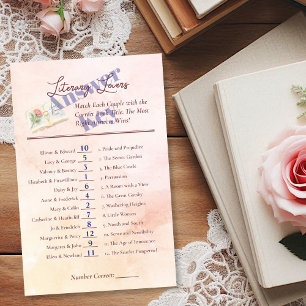 Literary Lovers
Answer
Key
Match Each Couple with the
Correct Book Title. The Most
Right Answers Wins!
Elinor & Edward 10 1. Pride and Prejudice
Lucy & George 5 2. The Secret Garden
Valancy & Barney 3 3. The Blue Castle
Elizabeth & Fitzwilliam 1 4. Persuasion
Daisy & Jay 6 5. A Room with a View
Anne & Frederick 4 6. The Great Gatsby
Mary & Colin 2 7. Wuthering Heights
Catherine & Heathcliff 7 8. Little Women
Jo & Friedrich 8 9. North and South
Marguerite & Percy 12 10. Sense and Sensibility
Margaret & John 9 11. The Age of Innocence
Ellen & Newland 11 12. The Scarlet Pimpernel
Number Correct: